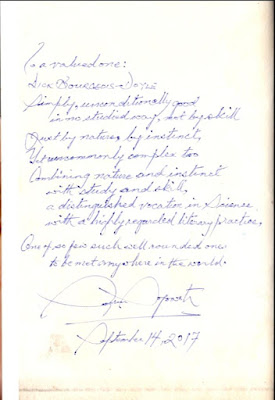 To a valued one:
Dick Bourgeois-Doyle
Simply, unconditionally good
in no studied way, not by skill
Just by nature, by instinct,
Yet uncommonly complex too
Combining nature and instinct
with study and skill,
a distinguished vocator in Science
with a highly regarded literary practice,
One of so few such well rounded ones
to be met anywhere in the world.
September 14, 2017